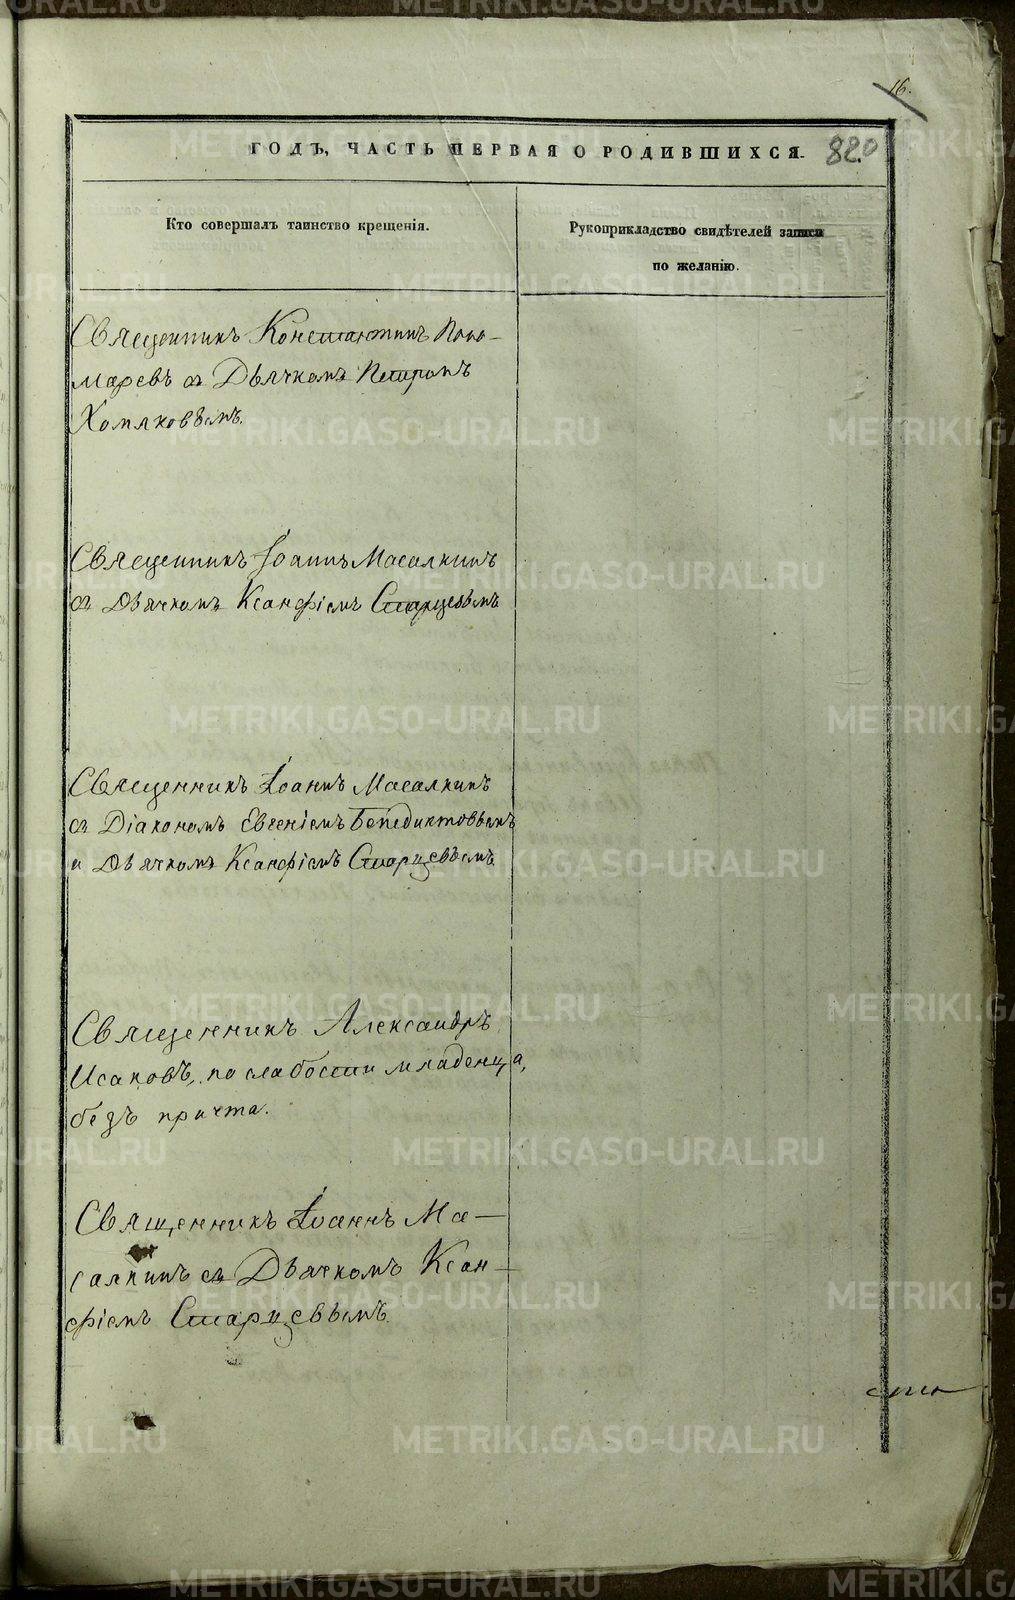 16.
ГОДЪ, ЧАСТЬ ПЕРВАЯ О РОДИВШИХСЯ.
820
Кто совершалъ таинство крещенія.
Рукоприкладство свидѣтелей записи
по желанію.
Священникъ Константинъ Поно-
маревъ съ Дьячкомъ Петромъ
Хомяковымъ.
Священникъ Іоаннъ Масалкинъ
съ Дьячкомъ Ксанфіемъ Старцевымъ
Священникъ Іоаннъ Масалкинъ
съ Діакономъ Евгеніемъ Бенедиктовымъ
и Дьячкомъ Ксанфіемъ Старцевымъ
Священникъ Александръ
Исаковъ, по слабости младенца,
безъ причта.
Священникъ Іоаннъ Ма-
салкинъ съ Дьячкомъ Ксан-
фіемъ Старцевымъ
METRIKI.GASO-URAL.RU